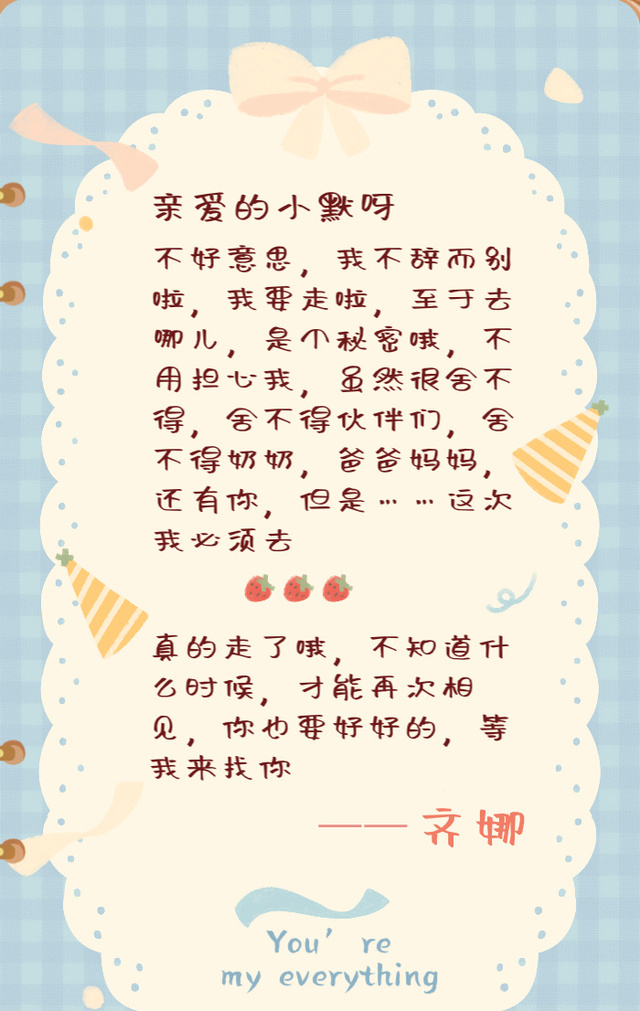 亲爱的小默呀
不好意思，我不辞而别
啦，我要走啦，至于去
哪儿，是个秘密哦，不
用担心我，虽然很舍不
得，舍不得伙伴们，舍
不得奶奶，爸爸妈妈，
还有你，但是……这次
我必须去
真的走了哦，不知道什
么时候，才能再次相
见，你也要好好的，等
我来找你
——齐娜
You're
my everything